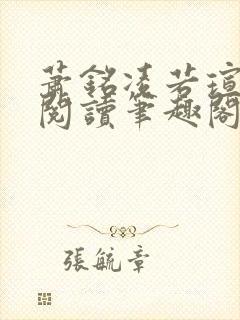 蕭銘凌若瑄
閱讀筆趣閣
張毓章